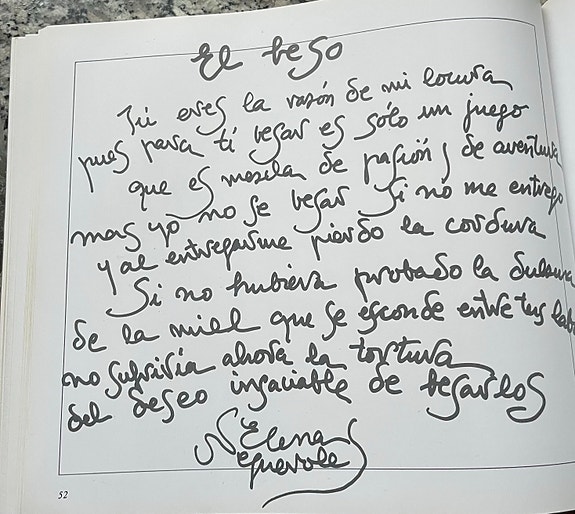 El beso
Tú eres la razón de mi locura
pues para tí besar es sólo un juego
que es mezcla de pasión y de aventura
mas yo no se besar si no me entrego
y al entregarme pierdo la cordura
Si no hubiera probado la dulzura
de la miel que se esconde entre tus lab
no sufriría ahora la tortura
del deseo insaciable de besarlos
Elena
52